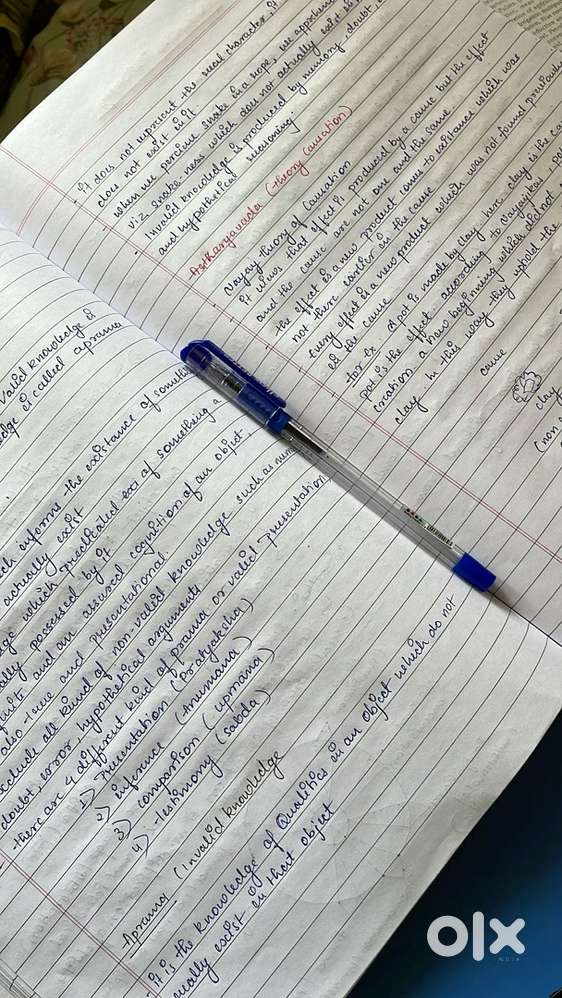 valid knowledge &
edge is called aprama
informs the existance of
actually exist
which predicated exi of something a
possessed by it
and an assured cognition of an object,
also true and presentational.
exclude all kind of non-valid knowledge such as
doubt, error, hypothetical arguments
there are 4 different kind of prama or valid presentation
1) Presentation (Pratyaksha)
2) inference (Anumana)
3) comparison (upmana)
4) testimony (sabda)
Aprama (invalid knowledge
it is the knowledge of Qualities in an object which do not
exist in that object
it does not represent the real character, it
does not exist in it.
when we percive snake in a rope, we
viz. snake ness which does not actually exist in
Invalid knowledge is produced by memory, doubt,
and hypothetical reasoning
(theory causation)
Nayay theory of Causation
it views that effect is produced by a cause but the effect
and the cause are not one and the same.
the effect is a new product comes to existance which was
not there earlier in the cause
Every effect is a new product which was not found
in the cause
for ex. A pot is made by clay here clay is the
pot is the effect, according to
creation, a new beginning which did not
clay in this way they uphold the
cause
clay
(non
olx
INDIA